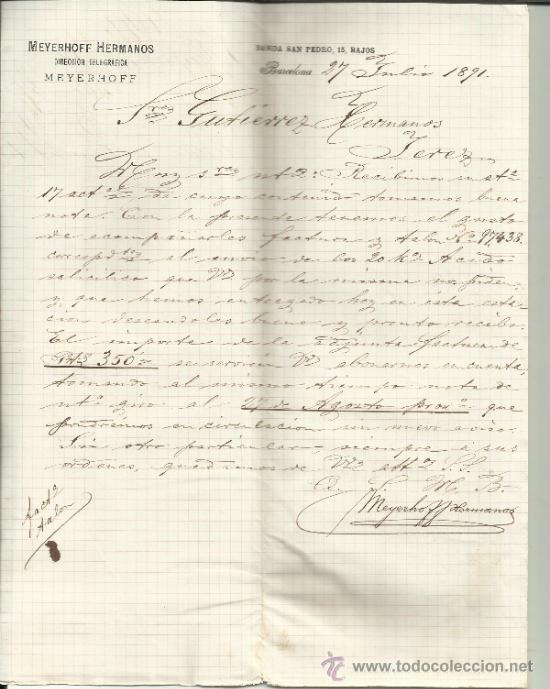 MEYERHOFF HERMANOS
DIRECCIÓN TELEGRÁFICA
MEYERHOFF
RONDA SAN PEDRO, 15, BAJOS
Barcelona 27 Julio 1891.
Sres Gutiérrez Hermanos
Jerez
Muy sres ntos: Recibimos su atª
17 actal de cuyo contenido tomamos buena
nota. Con la presente tenemos el gusto
de acompañarles factura y talon No 97,438
correspdte al envio de los 20 Ko Acido
salicilico que Vds por la misma nos piden
y que hemos entregado hoy en esta esta-
cion deseandoles bueno y pronto recibo.
El importe de la adjunta factura, de
Pts 350 se servirán Vds abonarnos en cuenta,
tomando al mismo tiempo nota de
nto giro al 27 de Agosto proxo que
pondremos en circulacion sin nuevo aviso.
Sin otro particular, siempre á sus
ordenes, quedamos de Vds atts S. S.
Q. S. M. B.
Meyerhoff Hermanos
factª
talon
todocoleccion
www.todocoleccion.net